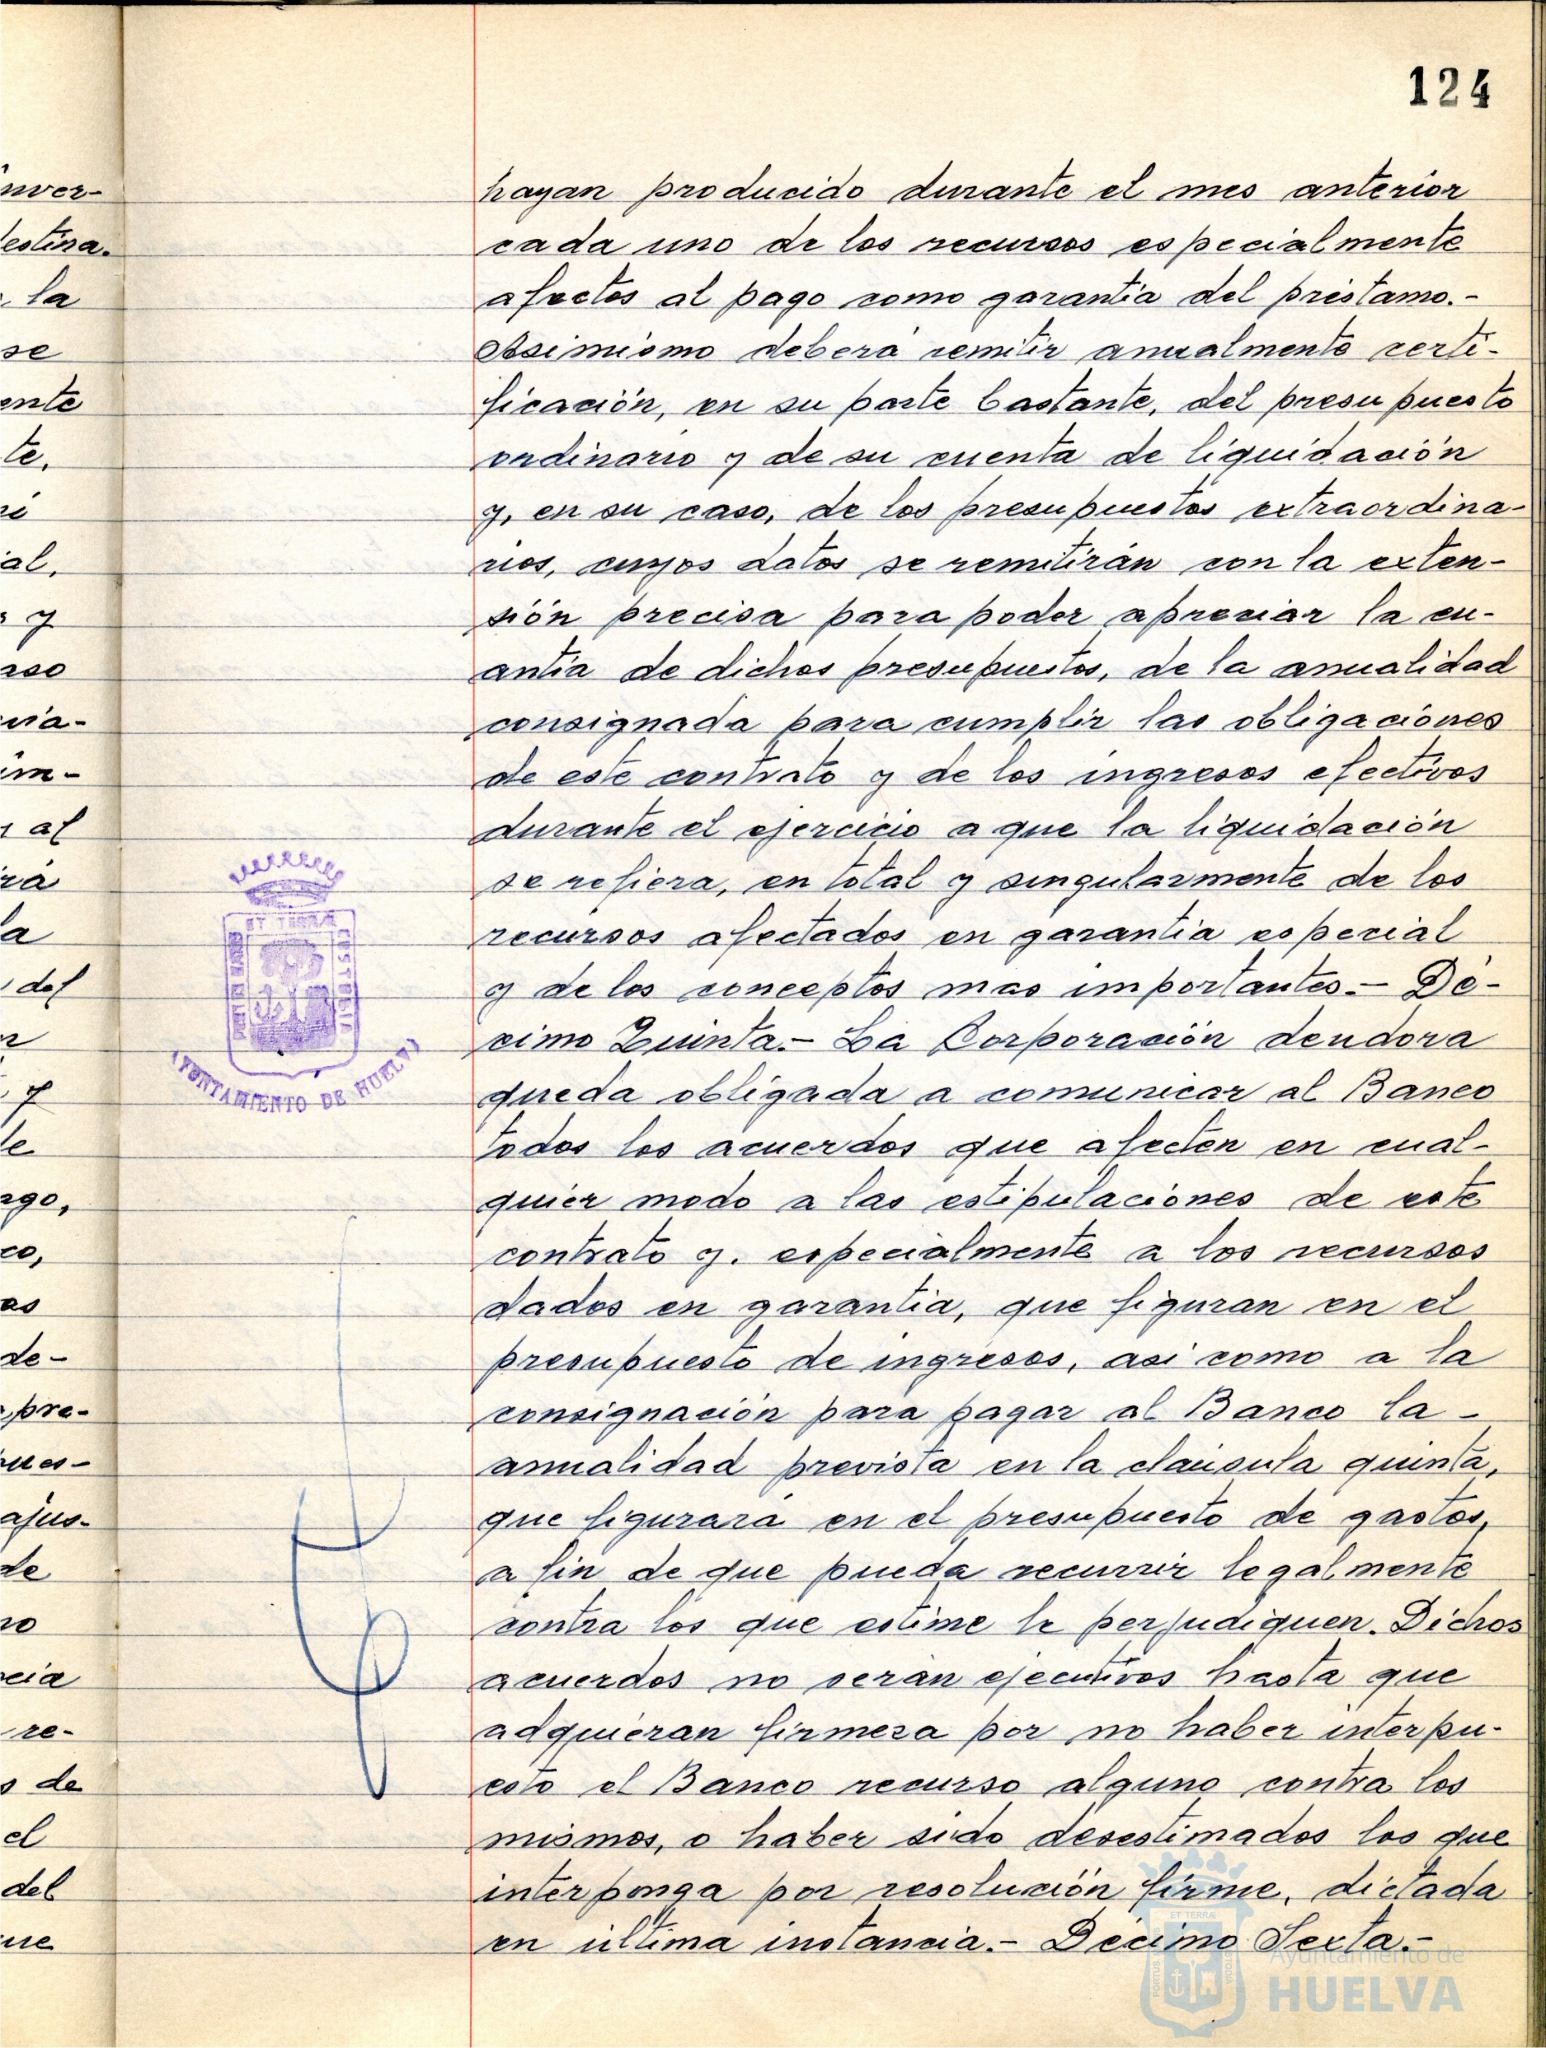 124
hayan producido durante el mes anterior
cada uno de los recursos especialmente
afectos al pago como garantia del préstamo.-
Asimismo deberá remitir anualmente certi-
ficación, en su parte bastante, del presupuesto
ordinario y de su cuenta de liquidación
y, en su caso, de los presupuestos extraordina-
rios, cuyos datos se remitirán con la exten-
sión precisa para poder apreciar la cu-
antia de dichos presupuestos, de la anualidad
consignada para cumplir las obligaciones
de este contrato y de los ingresos efectivos
durante el ejercicio a que la liquidación
se refiera, en total y singularmente de los
recursos afectados en garantia especial
y de los conceptos mas importantes.- Dé-
cimo Quinta.- La Corporación deudora
queda obligada a comunicar al Banco
todos los acuerdos que afecten en cual-
quier modo a las estipulaciones de este
contrato y. especialmente a los recursos
dados en garantia, que figuran en el
presupuesto de ingresos, asi como a la
consignación para pagar al Banco la -
anualidad prevista en la claúsula quinta,
que figurará en el presupuesto de gastos,
a fin de que pueda recurrir legalmente
contra los que estime le perjudiquen. Dichos
acuerdos no serán ejecutivos hasta que
adquieran firmeza por no haber interpu-
esto el Banco recurso alguno contra los
mismos, o haber sido desestimados los que
interponga por resolución firme, dictada
en última instancia.- Décimo Sexta.-
nver-
destina.
la
se
ente
te,
al,
y
aso
via-
im-
al
rá
la
del
y
de
ago,
co,
as
de-
pre-
pues-
ajus-
de
no
cia
re-
de
el
del
ue
ET TERRÆ
CUSTODIA
PORTUS MARIS
AYUNTAMIENTO DE HUELVA
ET TERRÆ
Ayuntamiento de
HUELVA